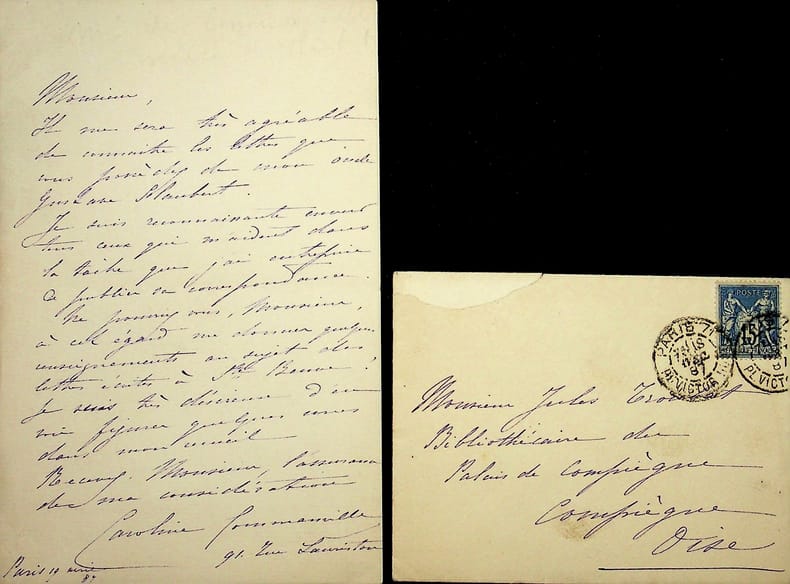 Monsieur,
Il me sera très agréable
de connaître les lettres que
vous possédez de mon oncle
Gustave Flaubert.
Je suis reconnaissante envers
tous ceux qui m'aident dans
la tâche que j'ai entreprise
de publier sa correspondance.
Ne pourriez vous, Monsieur,
à cet égard me donner quelques
renseignements au sujet des
lettres écrites à Ste Beuve?
Je serais très désireuse d'en
voir figurer quelques unes
dans mon recueil
Recevez, Monsieur, l'assurance
de ma considération
Caroline Commanville
91. rue Lauriston
Paris 19 avril
87
POSTE
15
PARIS 71
AVRIL
87
Pl. VICTOR HUGO
Pl. VICTO
Monsieur Jules Troubat
Bibliothécaire du
Palais de Compiègne
Compiègne
Oise